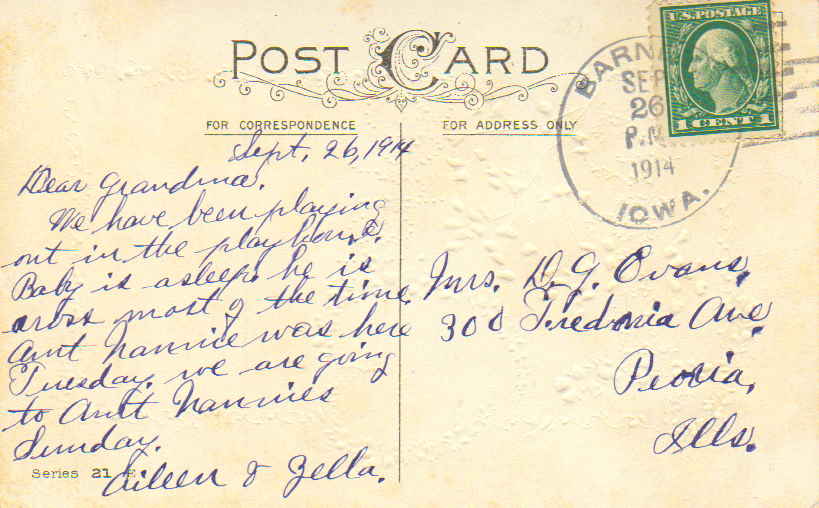 POST CARD
FOR CORRESPONDENCE
FOR ADDRESS ONLY
U.S. POSTAGE
1 CENT 1
BARN
SEP
26
P.M.
1914
IOWA.
Sept. 26, 1914
Dear Grandma.
We have been playing
out in the playhouse.
Baby is asleep. he is
cross most of the time.
Aunt Nannie was here
Tuesday. we are going
to Antt Nannies
Sunday.
Aileen & Zella.
Series 21
Mrs. D. G. Evans,
300 Fredonia Ave.
Peoria,
Ills.